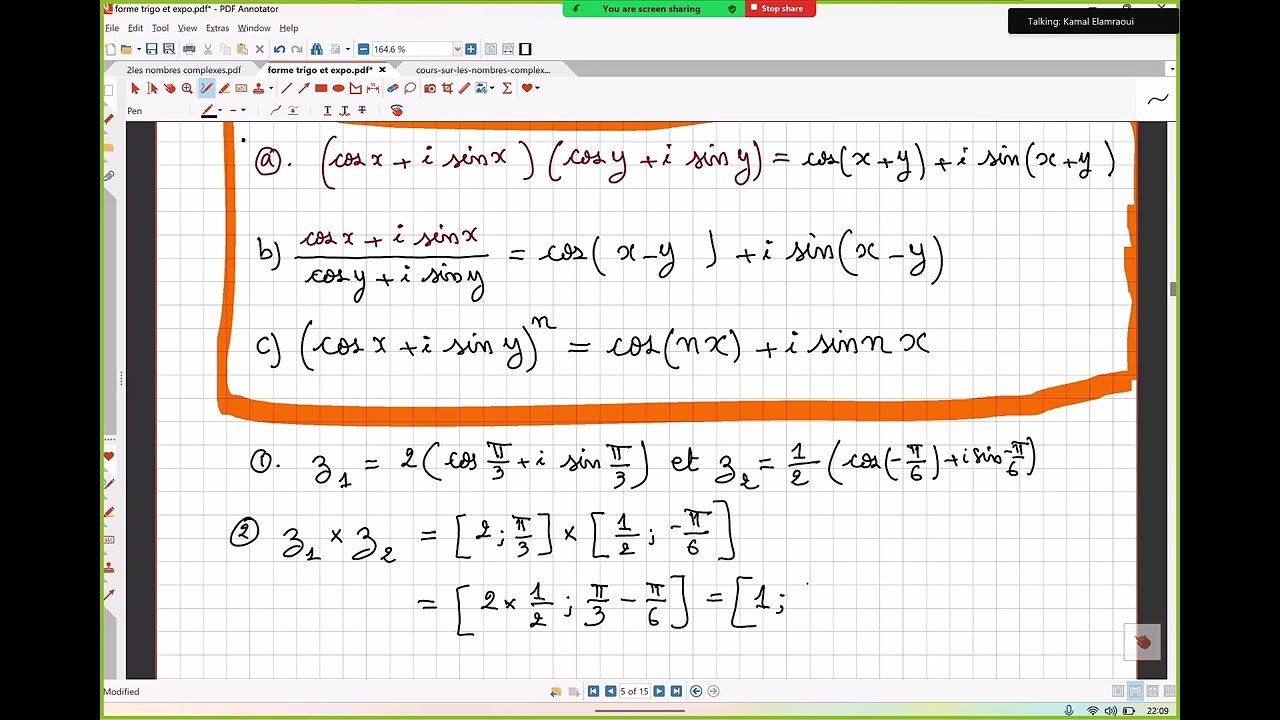 forme trigo et expo.pdf* - PDF Annotator
You are screen sharing
Stop share
Talking: Kamal Elamraoui
File Edit Tool View Extras Window Help
164.6 %
2les nombres complexes.pdf
forme trigo et expo.pdf*
cours-sur-les-nombres-complex...
Pen
ⓐ. (cos x + i sin x) (cos y + i sin y) = cos(x+y) + i sin(x+y)
b) (cos x + i sin x)/(cos y + i sin y) = cos(x-y) + i sin(x-y)
c) (cos x + i sin y)^n = cos(nx) + i sin n x
①. z₁ = 2(cos π/3 + i sin π/3) et z₂ = 1/2 (cos(-π/6) + i sin -π/6)
② z₁ × z₂ = [2 ; π/3] × [1/2 ; -π/6]
= [2 × 1/2 ; π/3 - π/6] = [1 ;
Modified
5 of 15
22:09